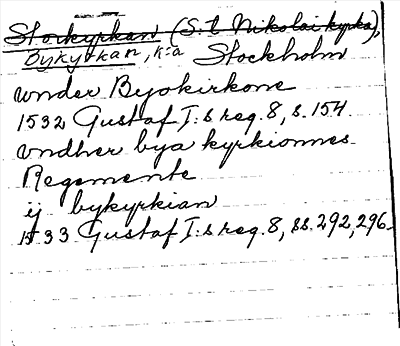 Storkyrkan (S:t Nikolai kyrka),
Bykyrkan, k:a Stockholm
wnder Byokirkone
1532 Gustaf I:s reg. 8, s. 154.
vndher bya kyrkionnes
Regemente
ij bykyrkian
1533 Gustaf I:s reg. 8, ss. 292, 296.